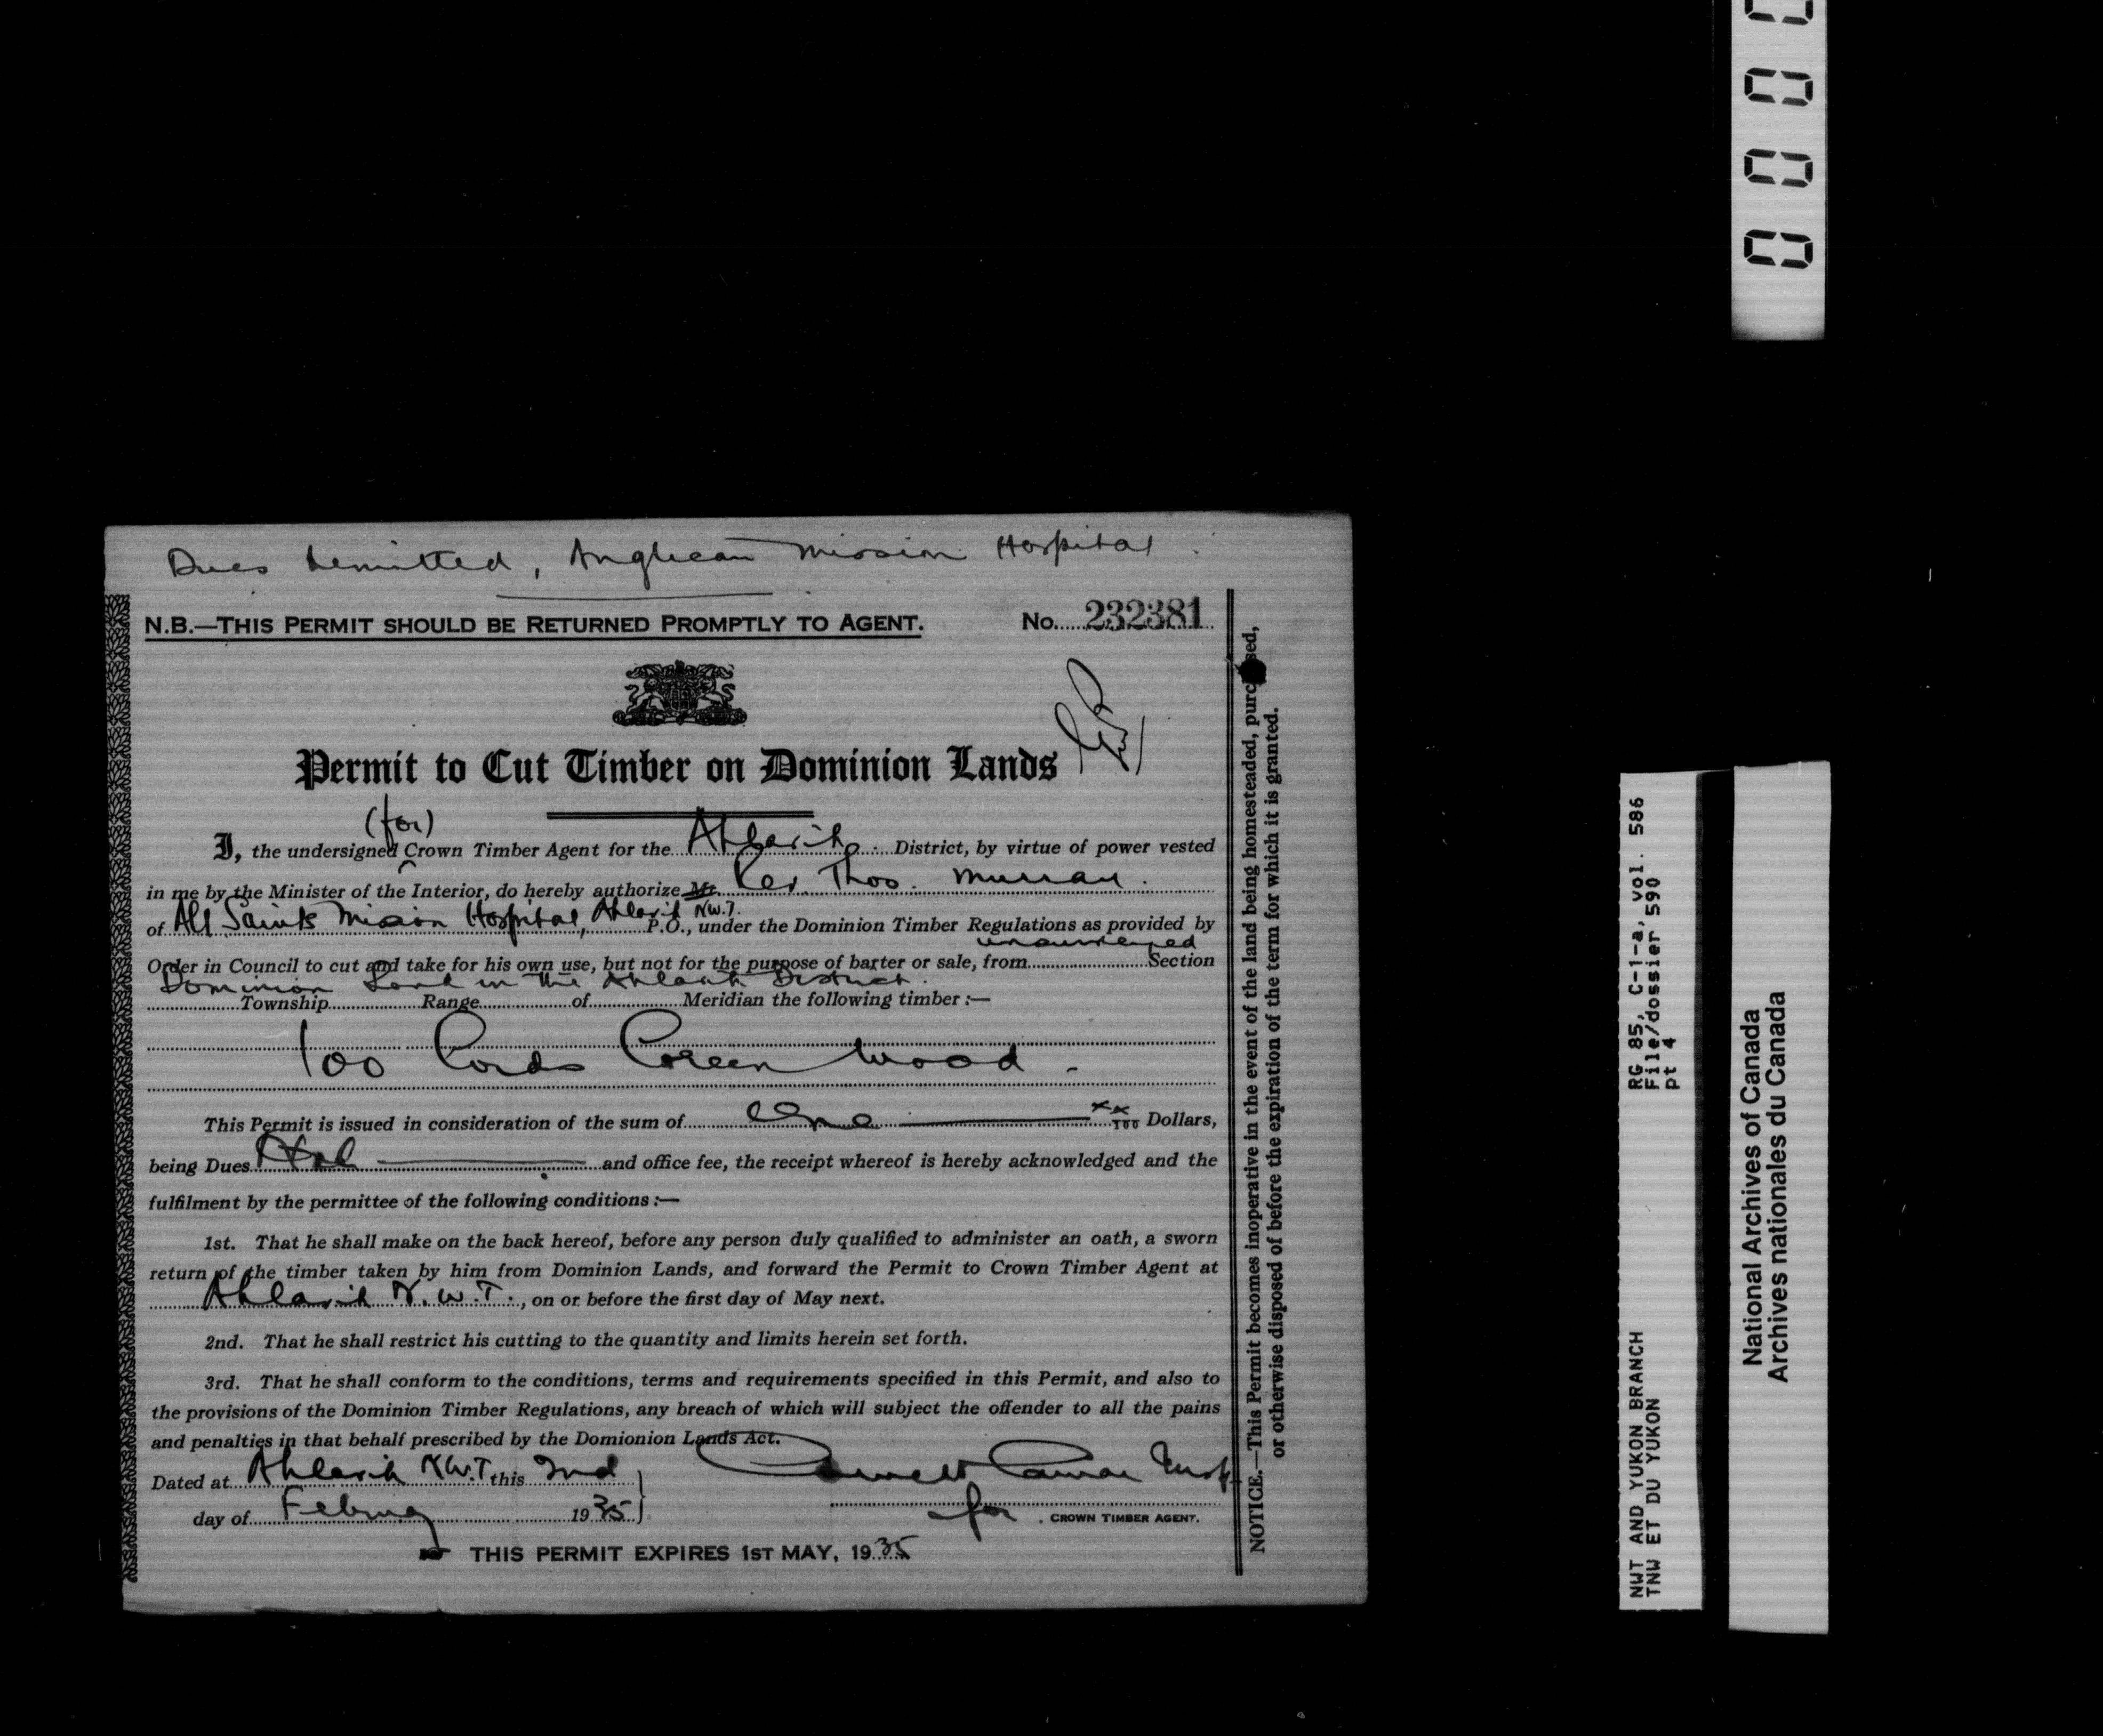 Dues remitted, Anglican Mission Hospital.
N.B.—THIS PERMIT SHOULD BE RETURNED PROMPTLY TO AGENT. No. 232381
Permit to Cut Timber on Dominion Lands
(for)
I, the undersigned Crown Timber Agent for the Aklavik District, by virtue of power vested
in me by the Minister of the Interior, do hereby authorize Mr. Rev. Thos. Murray.
of All Saints Mission Hospital, Aklavik N.W.T. P.O., under the Dominion Timber Regulations as provided by
unsurveyed
Order in Council to cut and take for his own use, but not for the purpose of barter or sale, from Section
Dominion Land in the Aklavik District.
Township Range of Meridian the following timber :—
100 Cords Green Wood.
This Permit is issued in consideration of the sum of One xx/100 Dollars,
being Dues and office fee, the receipt whereof is hereby acknowledged and the
fulfilment by the permittee of the following conditions :—
1st. That he shall make on the back hereof, before any person duly qualified to administer an oath, a sworn
return of the timber taken by him from Dominion Lands, and forward the Permit to Crown Timber Agent at
Aklavik N.W.T., on or before the first day of May next.
2nd. That he shall restrict his cutting to the quantity and limits herein set forth.
3rd. That he shall conform to the conditions, terms and requirements specified in this Permit, and also to
the provisions of the Dominion Timber Regulations, any breach of which will subject the offender to all the pains
and penalties in that behalf prescribed by the Domionion Lands Act.
Dated at Aklavik N.W.T this 2nd
day of February 1935
for CROWN TIMBER AGENT.
THIS PERMIT EXPIRES 1ST MAY, 1935
NOTICE.—This Permit becomes inoperative in the event of the land being homesteaded, purchased,
or otherwise disposed of before the expiration of the term for which it is granted.
RG 85, C-1-a, vol. 586
File/dossier 590
pt 4
NWT AND YUKON BRANCH
TNW ET DU YUKON
National Archives of Canada
Archives nationales du Canada
0000